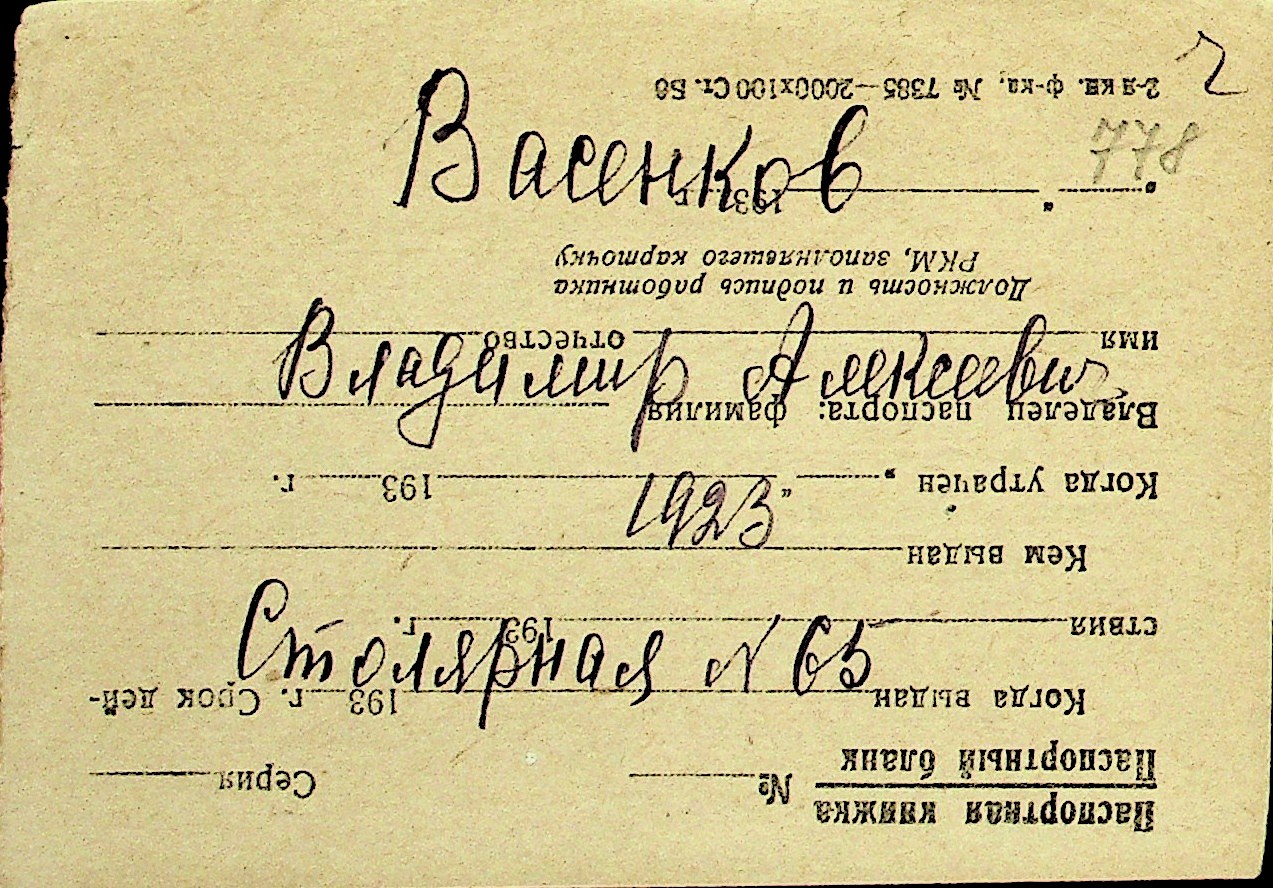 Васенков
Владимир Алексеевич
1923
Столярная N 65
778
Паспортная книжка
Паспортный бланк
№ Серия
Когда выдан 193 г. Срок дей-
ствия 193 г.
Кем выдан
Когда утрачен „ “ 193 г.
Владелец паспорта: фамилия
имя отчество
Должность и подпись работника
РКМ, заполнявшего карточку
„ “ 193 г.
2-я кн. ф-ка, № 7385—2000х100 Ст. Б6